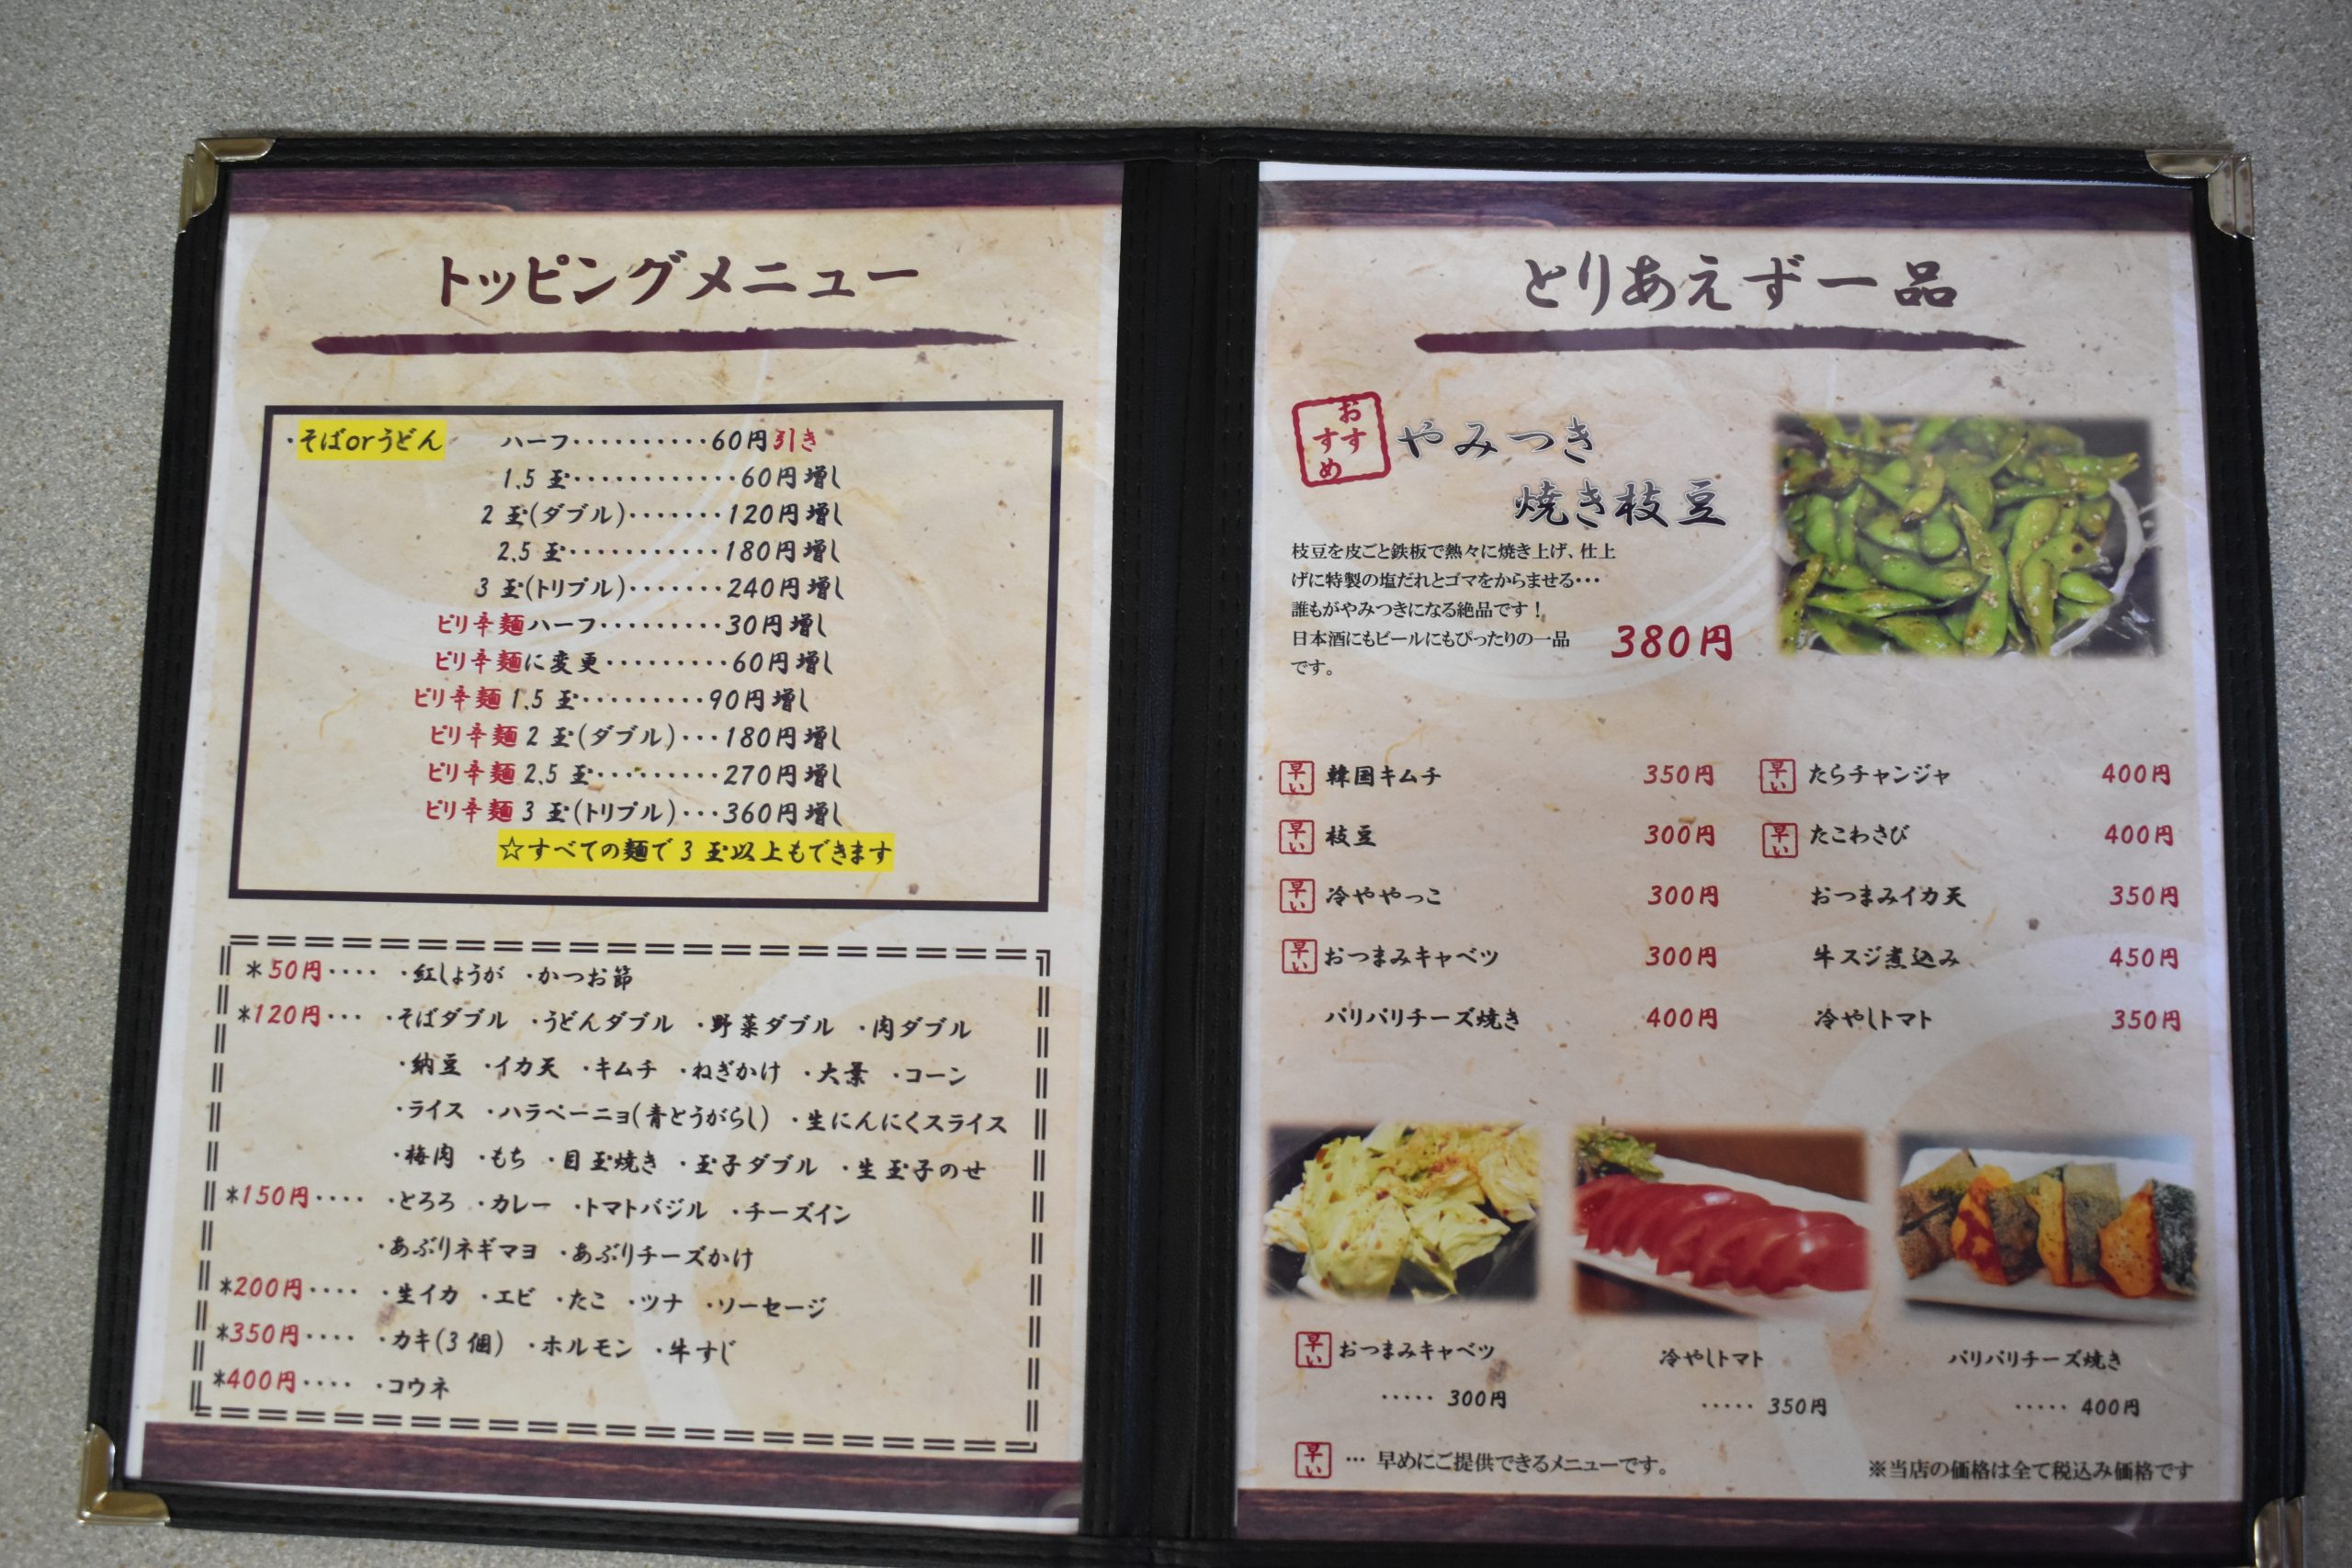 トッピングメニュー
・そばorうどん ハーフ・・・・・・・・・・60円引き
1.5 玉・・・・・・・・・・・・60円増し
2 玉(ダブル)・・・・・・・120円増し
2.5 玉・・・・・・・・・・・180円増し
3 玉(トリプル)・・・・・・・240円増し
ピリ辛麺ハーフ・・・・・・・・・30円増し
ピリ辛麺に変更・・・・・・・・・60円増し
ピリ辛麺 1.5 玉・・・・・・・・・90円増し
ピリ辛麺 2 玉(ダブル)・・・180円増し
ピリ辛麺 2.5 玉・・・・・・・・・270円増し
ピリ辛麺 3 玉(トリプル)・・・360円増し
☆すべての麺で 3 玉以上もできます
*50円・・・・ ・紅しょうが ・かつお節
*120円・・・ ・そばダブル ・うどんダブル ・野菜ダブル ・肉ダブル
・納豆 ・イカ天 ・キムチ ・ねぎかけ ・大葉 ・コーン
・ライス ・ハラペーニョ(青とうがらし) ・生にんにくスライス
・梅肉 ・もち ・目玉焼き ・玉子ダブル ・生玉子のせ
*150円・・・・ ・とろろ ・カレー ・トマトバジル ・チーズイン
・あぶりネギマヨ ・あぶりチーズかけ
*200円・・・・ ・生イカ ・エビ ・たこ ・ツナ ・ソーセージ
*350円・・・・ ・カキ(3 個) ・ホルモン ・牛すじ
*400円・・・・ ・コウネ
とりあえず一品
おすすめ やみつき
焼き枝豆
枝豆を皮ごと鉄板で熱々に焼き上げ、仕上
げに特製の塩だれとゴマをからませる・・・
誰もがやみつきになる絶品です！
日本酒にもビールにもぴったりの一品
です。
380円
早い 韓国キムチ 350円 早い たらチャンジャ 400円
早い 枝豆 300円 早い たこわさび 400円
早い 冷ややっこ 300円 おつまみイカ天 350円
早い おつまみキャベツ 300円 牛スジ煮込み 450円
パリパリチーズ焼き 400円 冷やしトマト 350円
早い おつまみキャベツ 冷やしトマト パリパリチーズ焼き
・・・・・ 300円 ・・・・・ 350円 ・・・・・ 400円
早い … 早めにご提供できるメニューです。 ※当店の価格は全て税込み価格です